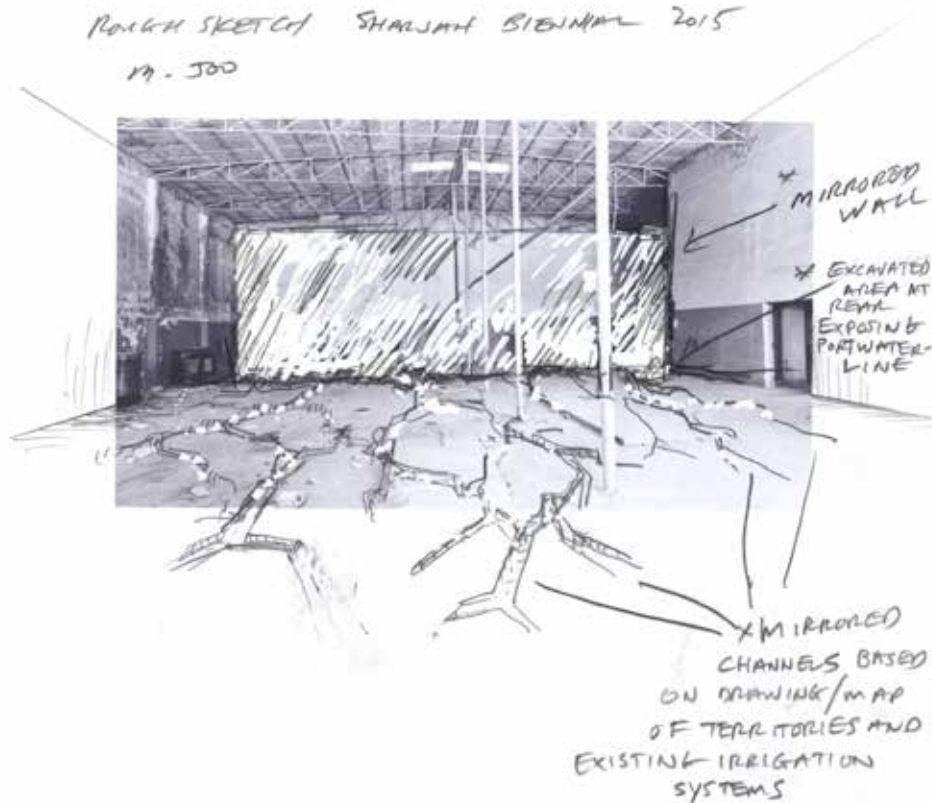 ROUGH SKETCH SHARJAH BIENNIAL 2015
M. JOO
* MIRRORED
WALL
* EXCAVATED
AREA AT
REAR
EXPOSING
PORTWATER-
LINE
* MIRRORED
CHANNELS BASED
ON DRAWING/MAP
OF TERRITORIES AND
EXISTING IRRIGATION
SYSTEMS